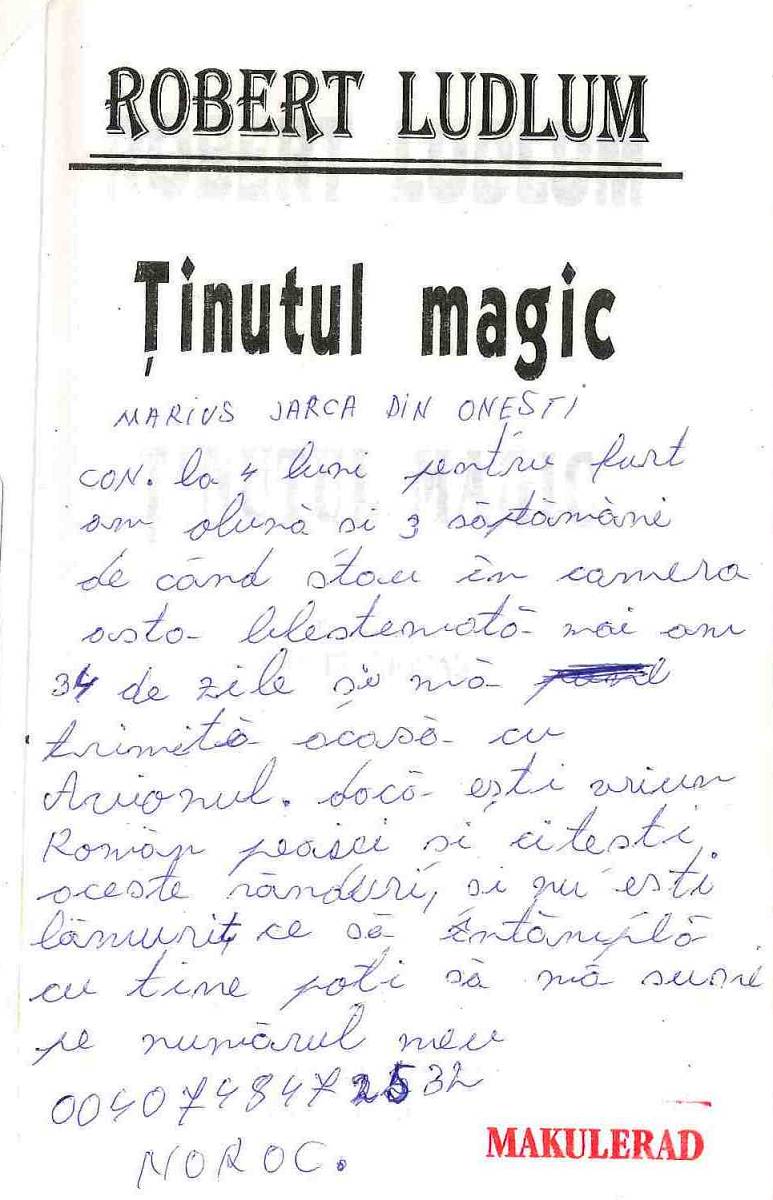 ROBERT LUDLUM
Ținutul magic
MARIUS JARCA DIN ONEȘTI
CON. la 4 luni pentru furt
am olună si 3 săptămâni
de când stau în camera
asta blestemată mai am
34 de zile și mă
trimită acasă cu
Avionul. dacă ești vriun
Român peaici si citesti
aceste rânduri, si nu ești
lămurit, ce să întâmplă
cu tine poti să mă suni
pe numărul meu
0040748472532
NOROC.
MAKULERAD